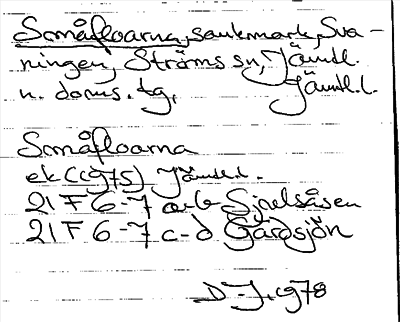 Småfloarna, sankmark, Sva-
ningen, Ströms sn, Jämtl.
n. doms. tg, Jämtl.l.
Småfloarna
ek (1975) Jämtl.l.
21 F 6-7 a-b Sjnelsåsen
21 F 6-7 c-d Gårdsjön
D-J. 1978